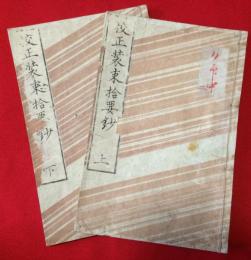 改正装束拾要鈔 上
改正装束拾要鈔 下